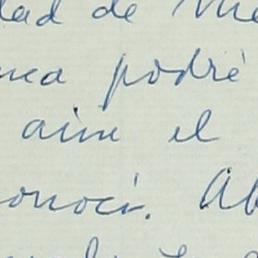 dad de Me
nca podré
aun el
onocí. Ab